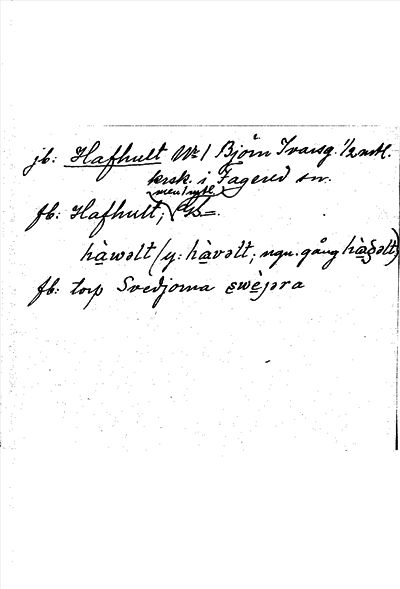 jb: Hafhult No 1 Björn Ivarsg. 1/2 mtl.
krsk. i Fagered sn.
fb: Hafhult;
hàwəlt (y: hàvəlt; ngn. gång hàƷəlt)
fb: torp Svedjorna swèjəra